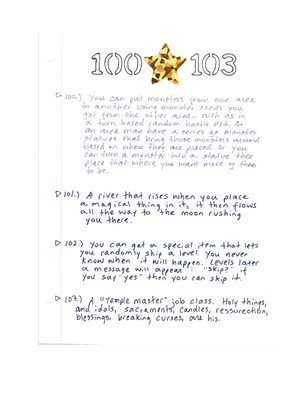 100 103
100.) You can put monsters from one area
to another using monster seeds you
get from the other area.. such as in
a turn based random battle RPG. Or
an area may have a series of monster
statues that bring those monsters around
based on where they are placed. Or you
can turn a monster into a statue then
place that where you want more of them
to be.
101.) A river that rises when you place
a magical thing in it, it then flows
all the way to the moon rushing
you there.
102.) You can get a special item that lets
you randomly skip a level. You never
know when it will happen. Levels later
a message will appear: "skip?" if
you say "yes" then you can skip it.
103.) A "Temple master" job class. Holy things,
and idols, sacraments, candles, ressurection,
blessings, breaking curses, are his.